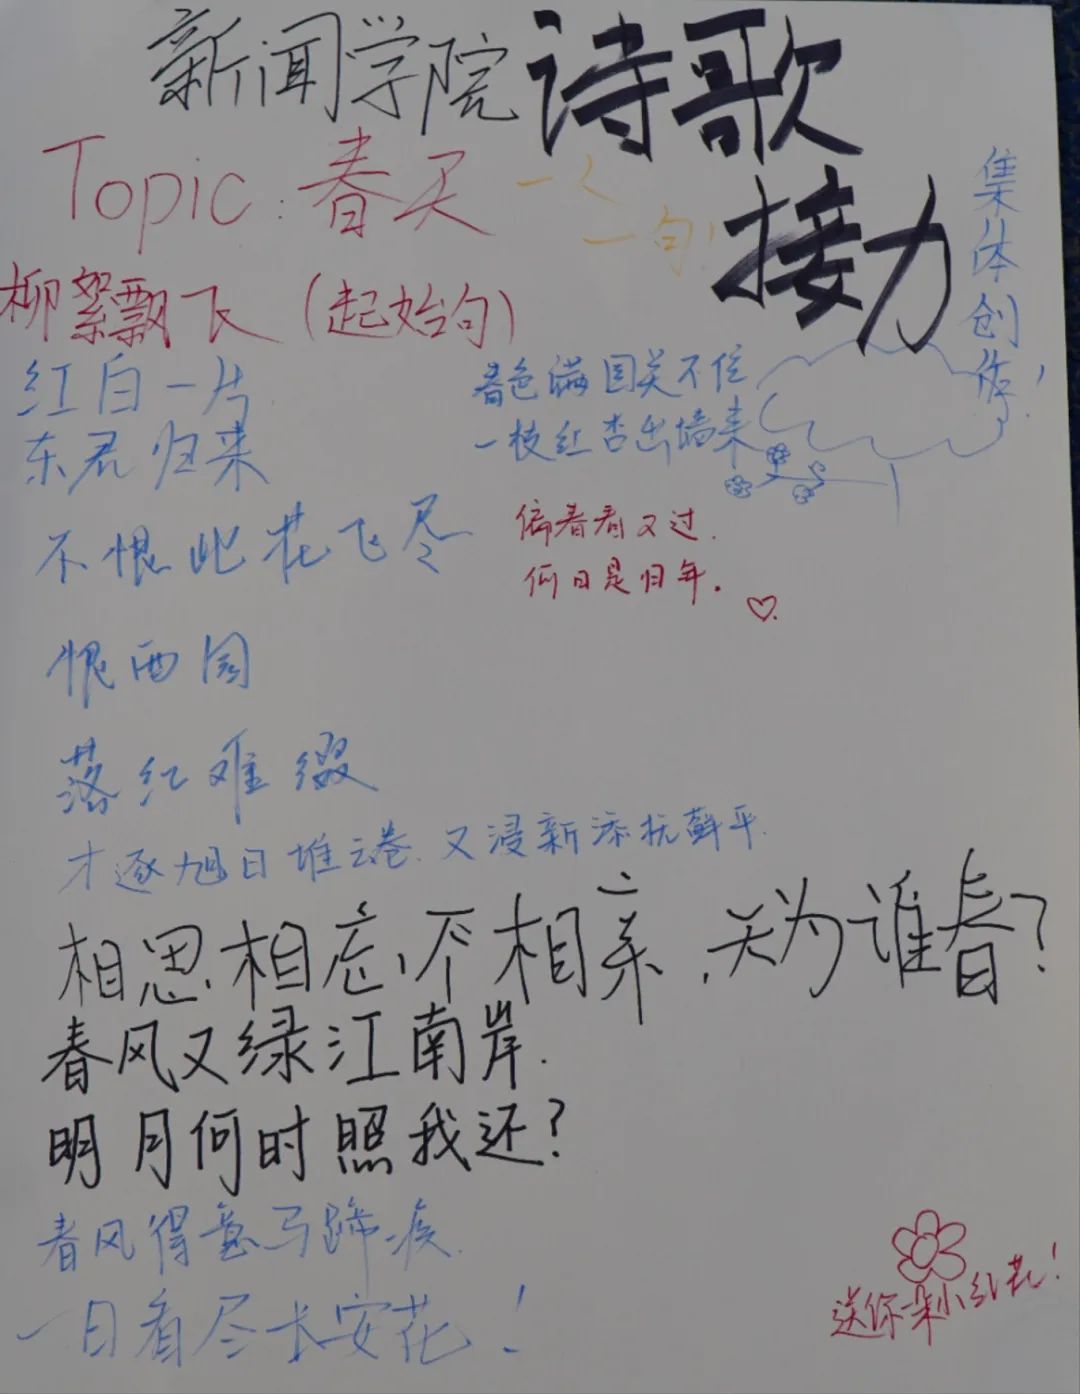 新闻学院 诗歌
接力
集体创作！
Topic：春天
一人
一句！
柳絮飘飞（起始句）
红白一片
东君归来
春色满园关不住
一枝红杏出墙来
不恨此花飞尽
恨西园
落红难缀
春看又过.
何日是归年.
才逐旭日堆云卷.又浸新添扰藓平.
相思,相忘,不相亲,天为谁春?
春风又绿江南岸.
明月何时照我还?
春风得意马蹄疾.
一日看尽长安花!
送你一朵小红花!